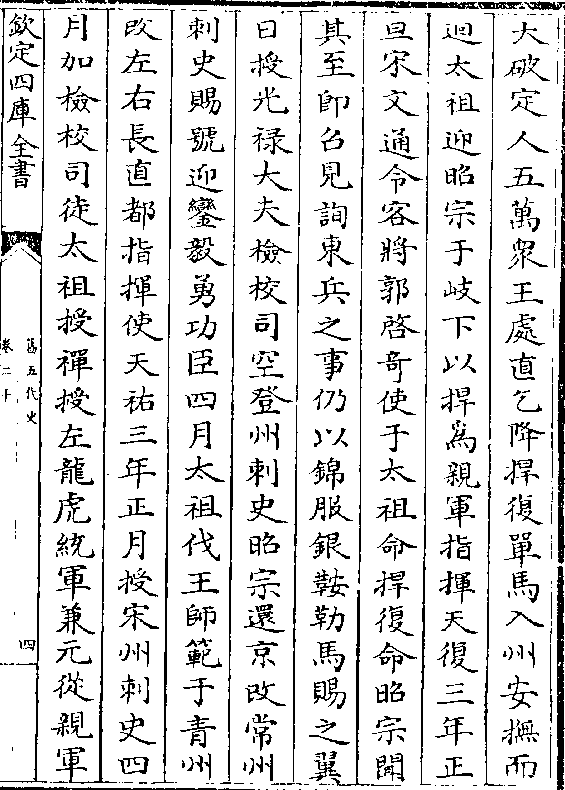 大破定人五萬衆王處直乞降捍復單馬入州安撫而
迴太祖迎昭宗于岐下以捍爲親軍指揮天復三年正
旦宋文通令客將郭啓奇使于太祖命捍復命昭宗聞
其至即召見詢東兵之事仍以錦服銀鞍勒馬賜之翼
日授光禄大夫檢校司空登州刺史昭宗還京改常州
刺史賜號迎鑾毅勇功臣四月太祖伐王師範于青州
改左右長直都指揮使天祐三年正月授宋州刺史四
月加檢校司徒太祖授禪授左龍虎統軍兼元從親軍
欽定四庫全書
舊五代史
卷二十
四